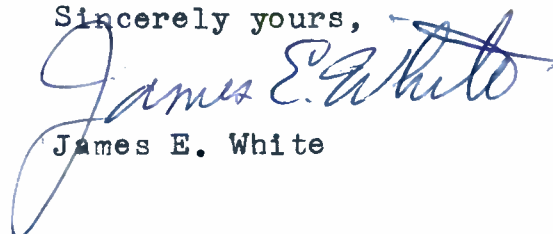 Sincerely yours,
James E. White
James E. White